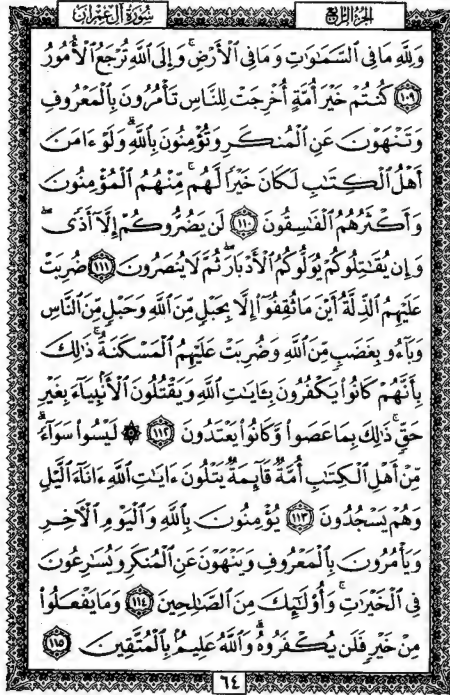 الجزء الرابع سورة آل عمران
وَلِلَّهِ مَا فِي ٱلسَّمَٰوَٰتِ وَمَا فِي ٱلۡأَرۡضِۚ وَإِلَى ٱللَّهِ تُرۡجَعُ ٱلۡأُمُورُ
١٠٩ كُنتُمۡ خَيۡرَ أُمَّةٍ أُخۡرِجَتۡ لِلنَّاسِ تَأۡمُرُونَ بِٱلۡمَعۡرُوفِ
وَتَنۡهَوۡنَ عَنِ ٱلۡمُنكَرِ وَتُؤۡمِنُونَ بِٱللَّهِۗ وَلَوۡ ءَامَنَ
أَهۡلُ ٱلۡكِتَٰبِ لَكَانَ خَيۡرٗا لَّهُمۚ مِّنۡهُمُ ٱلۡمُؤۡمِنُونَ
وَأَكۡثَرُهُمُ ٱلۡفَٰسِقُونَ ١١٠ لَن يَضُرُّوكُمۡ إِلَّآ أَذٗىۖ
وَإِن يُقَٰتِلُوكُمۡ يُوَلُّوكُمُ ٱلۡأَدۡبَارَ ثُمَّ لَا يُنصَرُونَ ١١١ ضُرِبَتۡ
عَلَيۡهِمُ ٱلذِّلَّةُ أَيۡنَ مَا ثُقِفُوٓاْ إِلَّا بِحَبۡلٖ مِّنَ ٱللَّهِ وَحَبۡلٖ مِّنَ ٱلنَّاسِ
وَبَآءُو بِغَضَبٖ مِّنَ ٱللَّهِ وَضُرِبَتۡ عَلَيۡهِمُ ٱلۡمَسۡكَنَةُۚ ذَٰلِكَ
بِأَنَّهُمۡ كَانُواْ يَكۡفُرُونَ بِـَٔايَٰتِ ٱللَّهِ وَيَقۡتُلُونَ ٱلۡأَنۢبِيَآءَ بِغَيۡرِ
حَقّٖۚ ذَٰلِكَ بِمَا عَصَواْ وَّكَانُواْ يَعۡتَدُونَ ١١٢ ۞ لَيۡسُواْ سَوَآءٗۗ
مِّنۡ أَهۡلِ ٱلۡكِتَٰبِ أُمَّةٞ قَآئِمَةٞ يَتۡلُونَ ءَايَٰتِ ٱللَّهِ ءَانَآءَ ٱلَّيۡلِ
وَهُمۡ يَسۡجُدُونَ ١١٣ يُؤۡمِنُونَ بِٱللَّهِ وَٱلۡيَوۡمِ ٱلۡأٓخِرِ
وَيَأۡمُرُونَ بِٱلۡمَعۡرُوفِ وَيَنۡهَوۡنَ عَنِ ٱلۡمُنكَرِ وَيُسَٰرِعُونَ
فِي ٱلۡخَيۡرَٰتِۖ وَأُوْلَٰٓئِكَ مِنَ ٱلصَّٰلِحِينَ ١١٤ وَمَا يَفۡعَلُواْ
مِنۡ خَيۡرٖ فَلَن يُكۡفَرُوهُۗ وَٱللَّهُ عَلِيمُۢ بِٱلۡمُتَّقِينَ ١١٥
٦٤